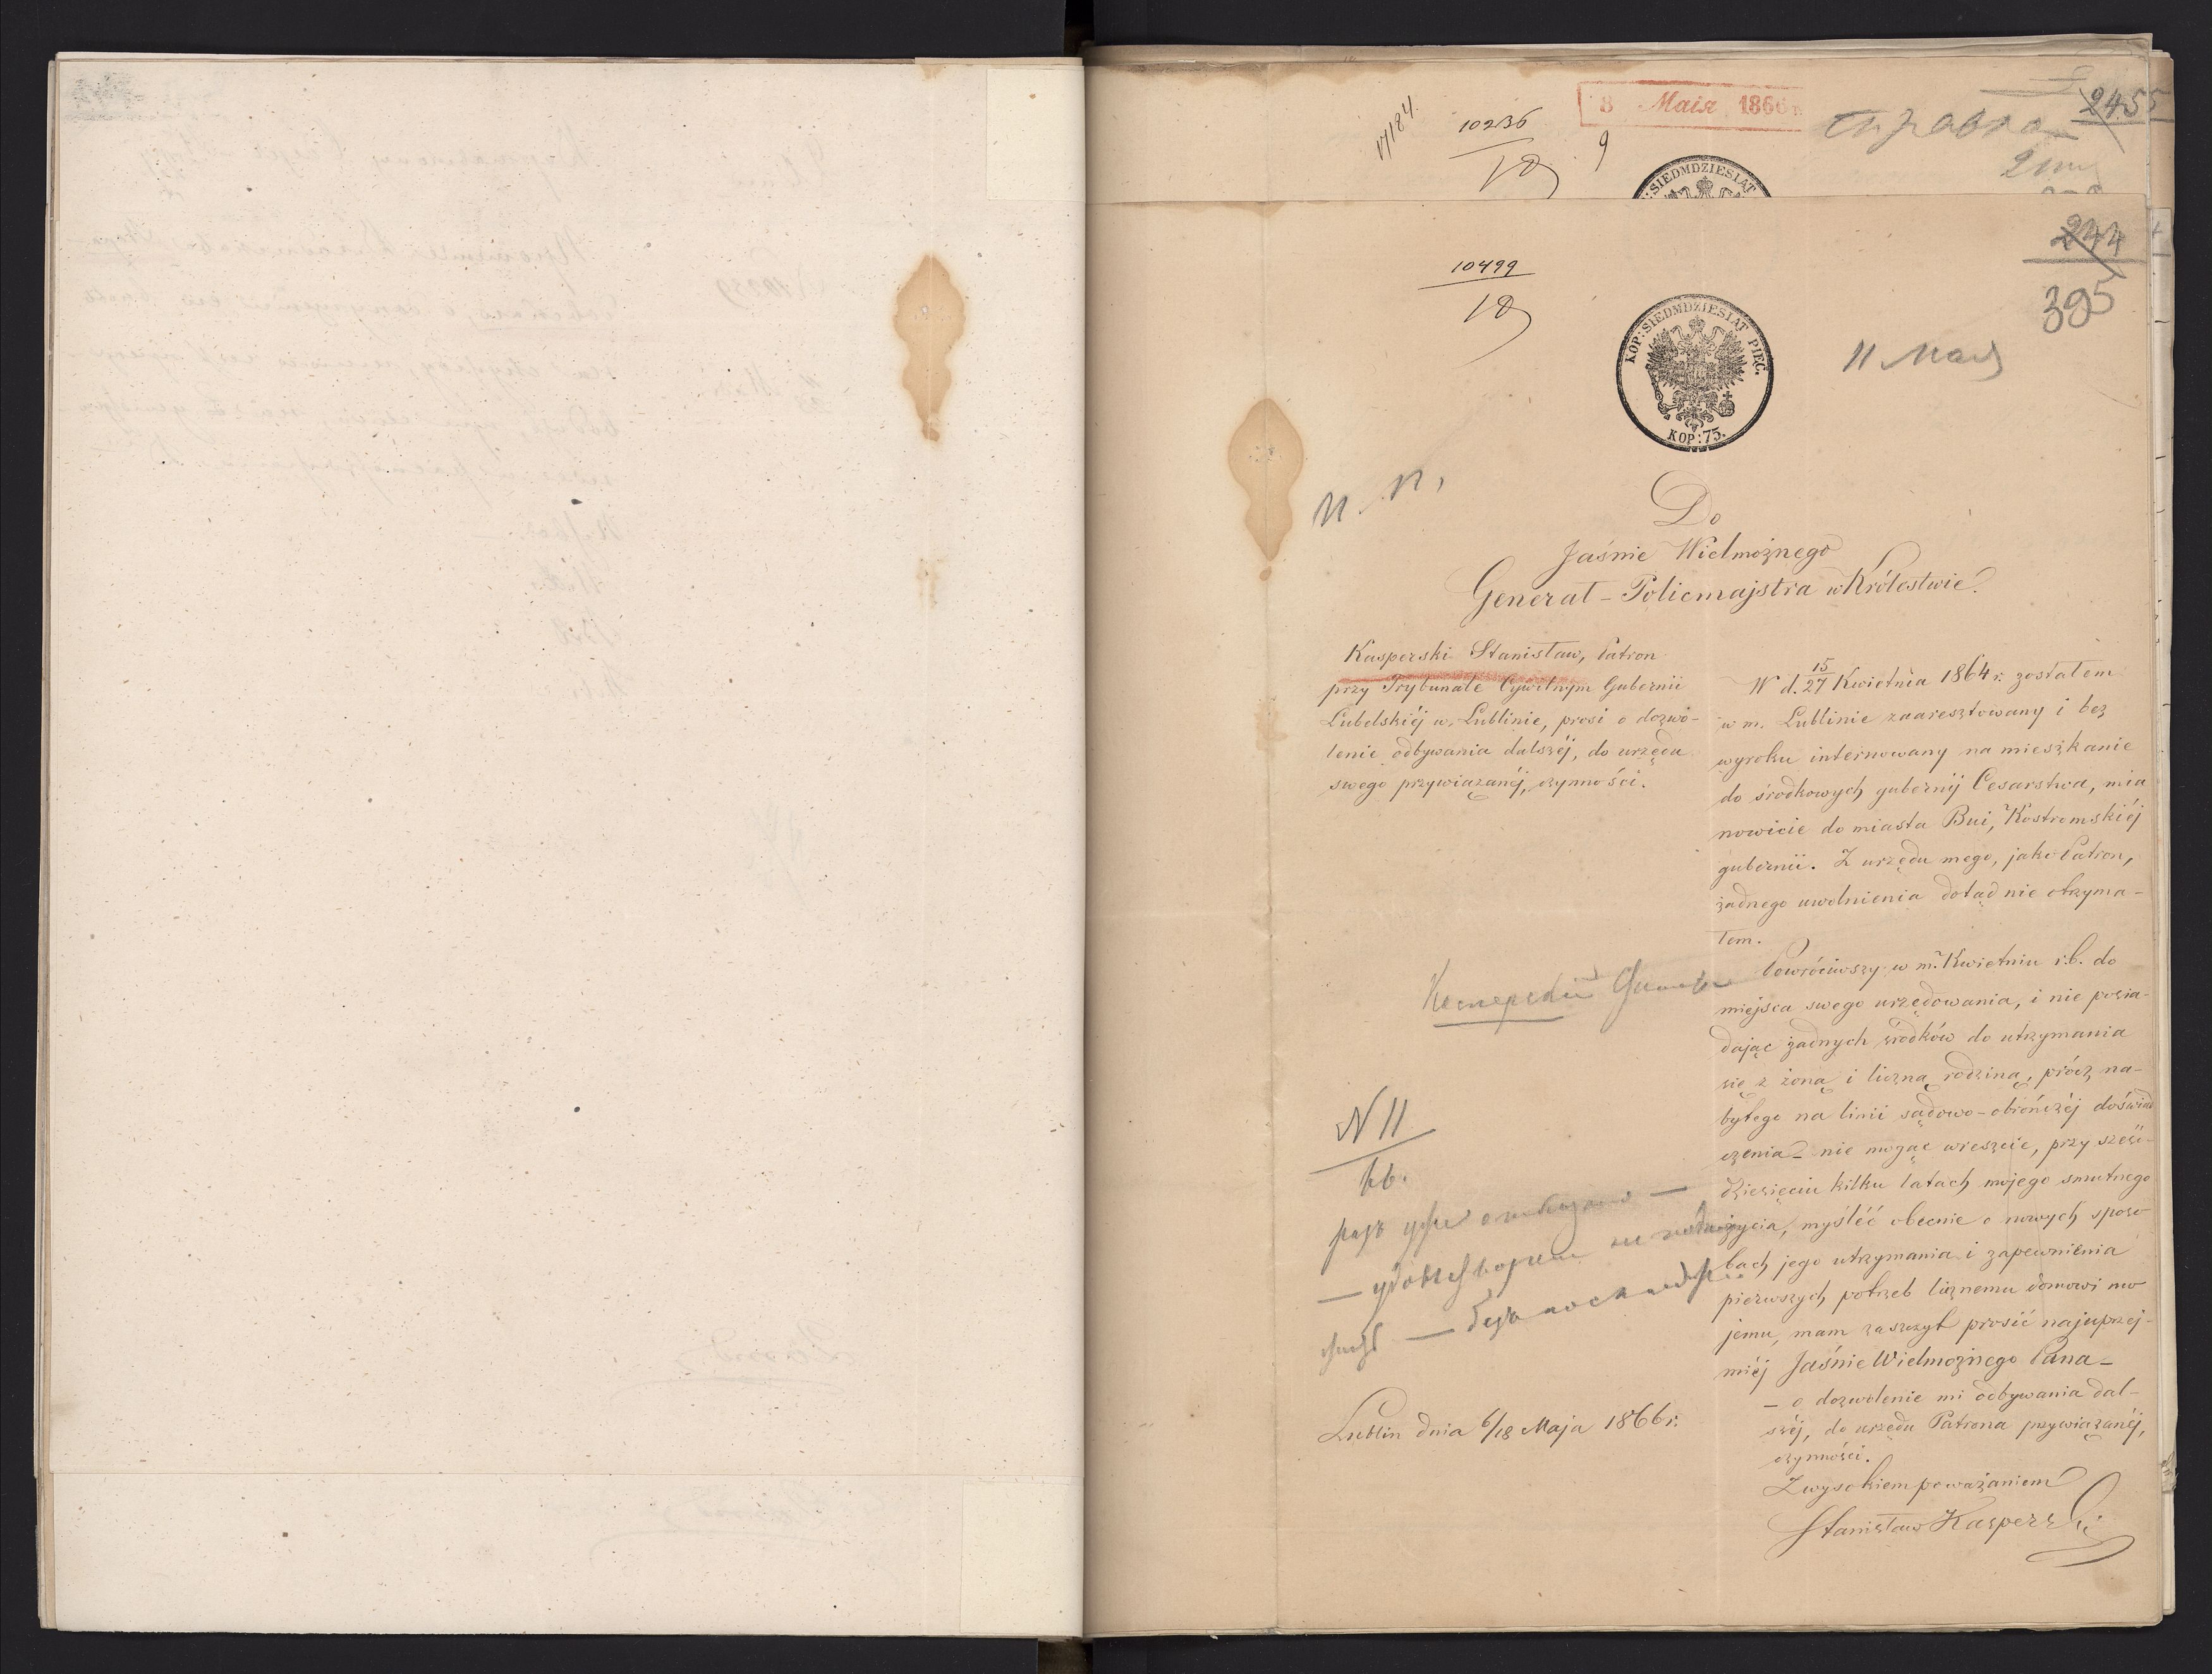 17184
10236
18
8 Мая 1866 г.
9
справка
245
KOP: SIEDMDZIESIĄT
244
395
10499
18
KOP: SIEDMDZIESIĄT PIĘĆ.
KOP: 75.
11 Мая
Do
Jaśnie Wielmożnego
Generał-Policmajstra w Królestwie.
Kasperski Stanisław, Patron
przy Trybunale Cywilnym Gubernii
Lubelskiéj w Lublinie, prosi o dozwo-
lenie odbywania dalszéj, do urzędu
swego przywiązanéj, czynności.
W d. 15/27 Kwietnia 1864 r. zostałem
w m. Lublinie zaaresztowany i bez
wyroku internowany na mieszkanie
do środkowych gubernij Cesarstwa, mia
nowicie do miasta Bui, Kostromskiéj
gubernii. Z urzędu mego, jako Patron,
żadnego uwolnienia dotąd nie otrzyma-
łem.
Powróciwszy w m. Kwietniu r.b. do
miejsca swego urzędowania, i nie posia-
dając żadnych środków do utrzymania
się z żoną i liczną rodziną, prócz na-
bytego na linii sądowo-obrończéj doświad
czenia – nie mogąc wreszcie, przy sześć-
dziesięciu kilku latach mojego smutnego
życia, myśléć obecnie o nowych sposo
bach jego utrzymania i zapewnienia
pierwszych potrzeb licznemu domowi mo
jemu, mam zaszczyt prosić najuprzej-
miéj Jaśnie Wielmożnego Pana –
– o dozwolenie mi odbywania dal-
széj, do urzędu Patrona przywiązanéj,
czynności.
Z wysokiem poważaniem
Stanisław Kasperski
N 11
Lublin dnia 6/18 Maja 1866 r.